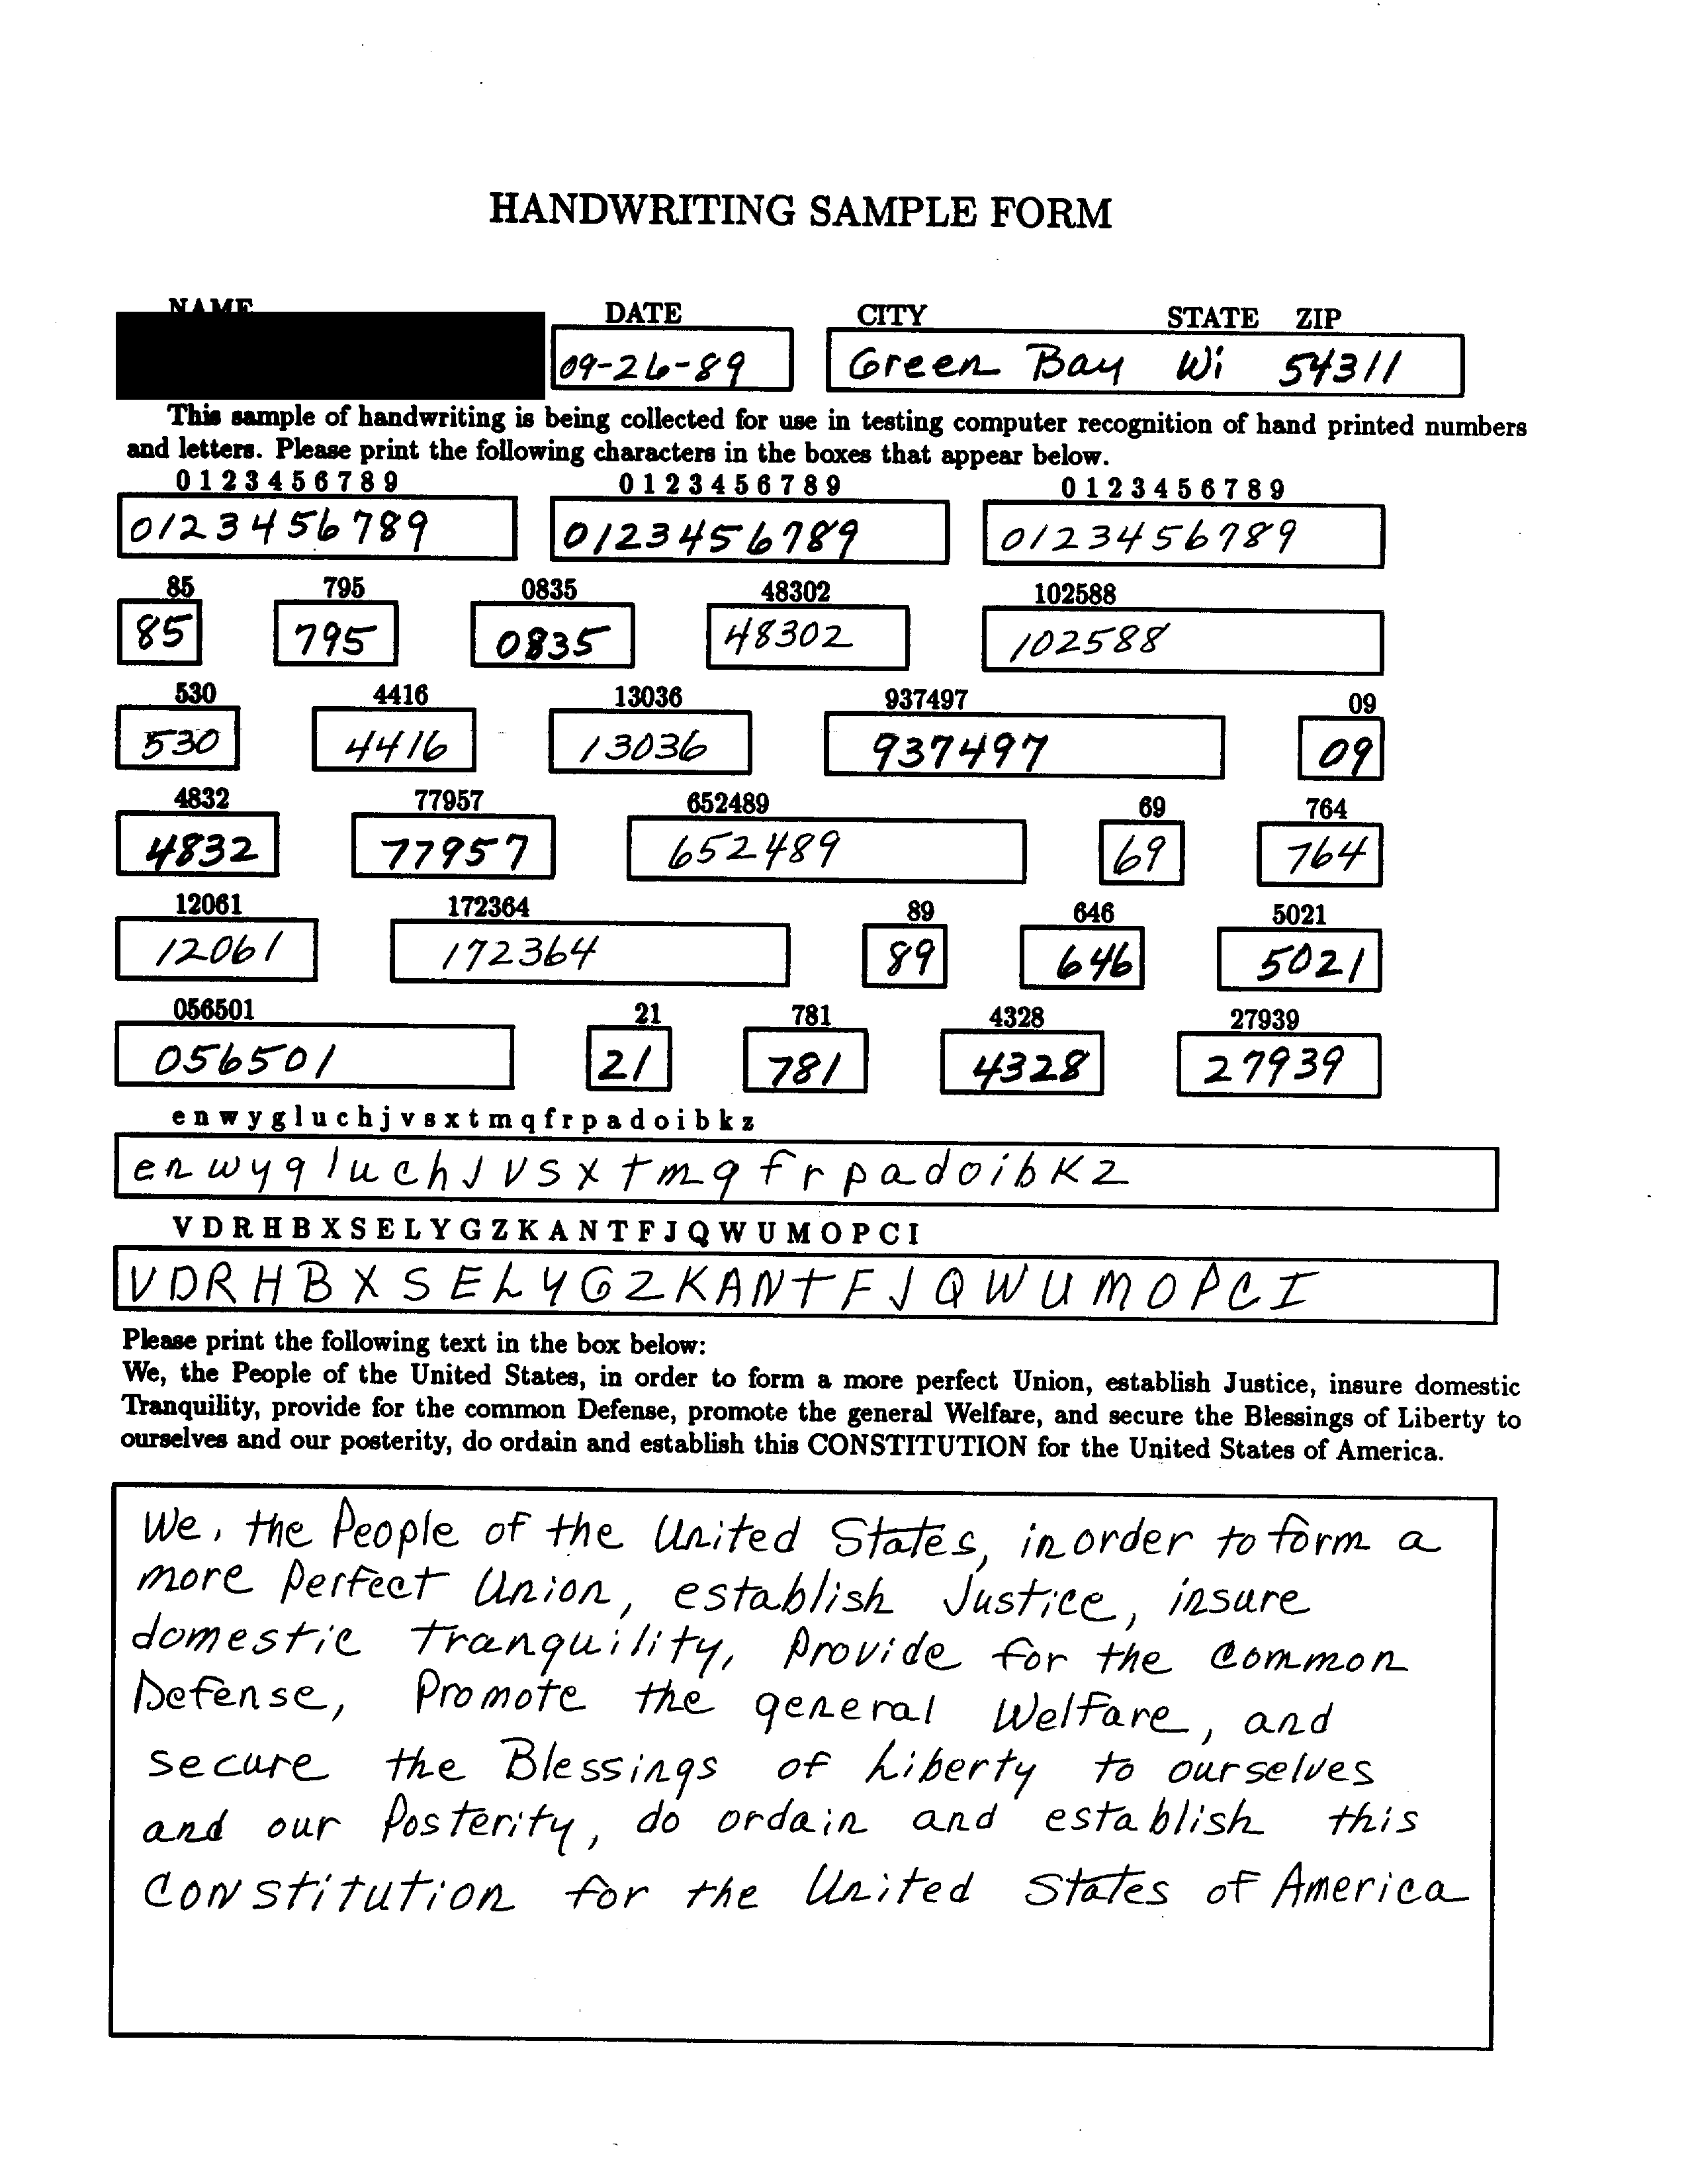 HANDWRITING SAMPLE FORM
NAME DATE CITY STATE ZIP
09-26-89 Green Bay Wi 54311
This sample of handwriting is being collected for use in testing computer recognition of hand printed numbers
and letters. Please print the following characters in the boxes that appear below.
0 1 2 3 4 5 6 7 8 9 0 1 2 3 4 5 6 7 8 9 0 1 2 3 4 5 6 7 8 9
0123456789 0123456789 0123456789
85 795 0835 48302 102588
85 795 0835 48302 102588
530 4416 13036 937497 09
530 4416 13036 937497 09
4832 77957 652489 69 764
4832 77957 652489 69 764
12061 172364 89 646 5021
12061 172364 89 646 5021
056501 21 781 4328 27939
056501 21 781 4328 27939
e n w y g l u c h j v s x t m q f r p a d o i b k z
e n w y g l u c h j v s x t m q f r p a d o i b K z
V D R H B X S E L Y G Z K A N T F J Q W U M O P C I
V D R H B X S E L Y G Z K A N T F J Q W U M O P C I
Please print the following text in the box below:
We, the People of the United States, in order to form a more perfect Union, establish Justice, insure domestic
Tranquility, provide for the common Defense, promote the general Welfare, and secure the Blessings of Liberty to
ourselves and our posterity, do ordain and establish this CONSTITUTION for the United States of America.
We, the People of the United States, in order to form a
more perfect Union, establish Justice, insure
domestic tranquility, provide for the common
Defense, Promote the general Welfare, and
secure the Blessings of Liberty to ourselves
and our Posterity, do ordain and establish this
Constitution for the United States of America